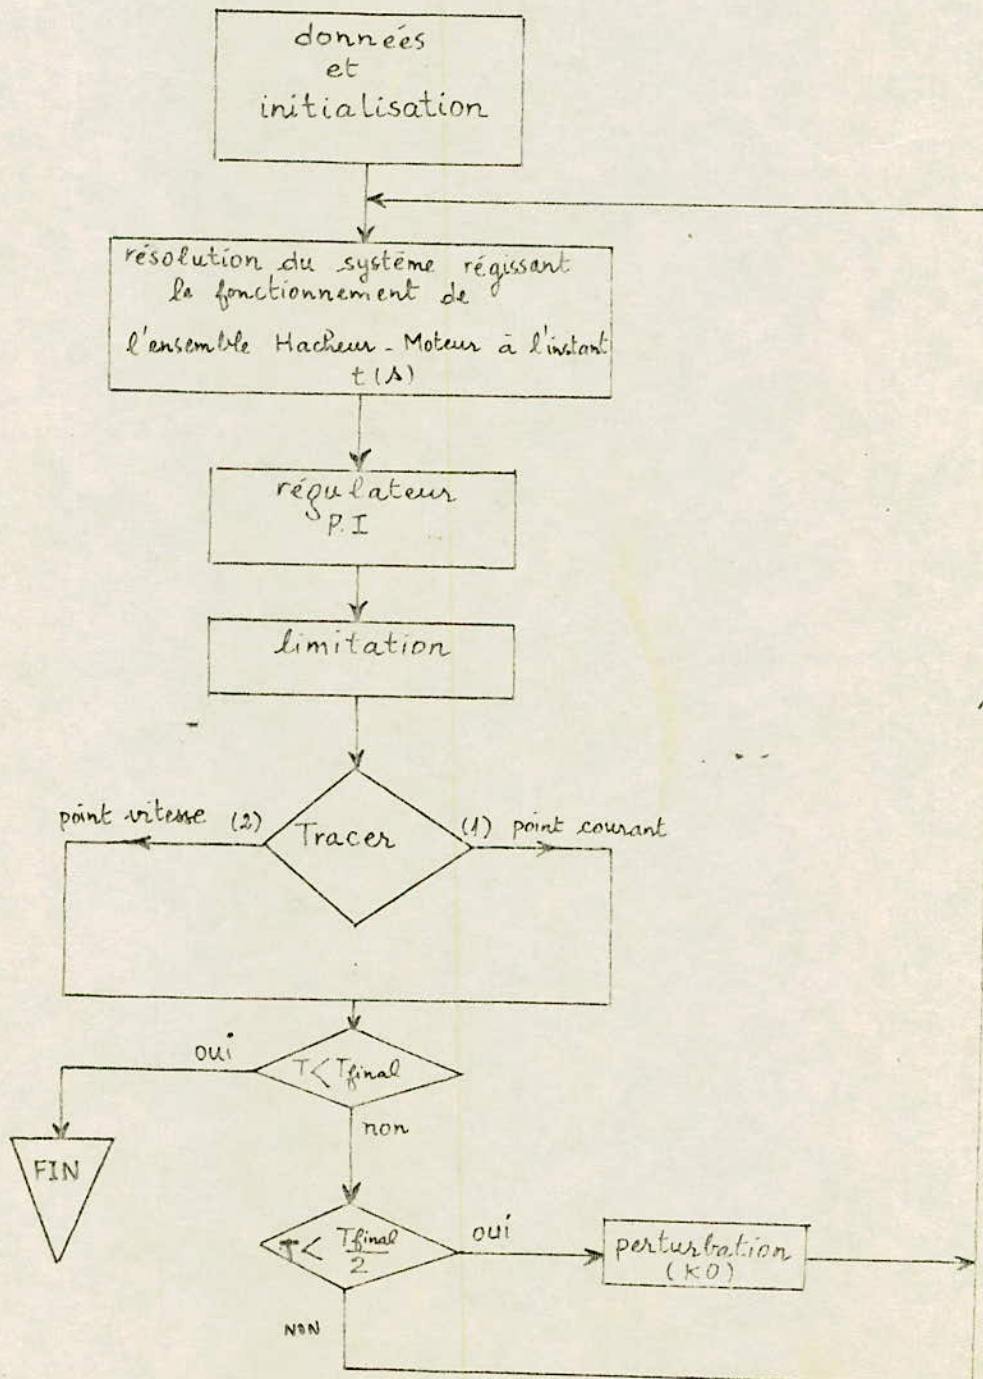 données
et
initialisation
résolution du système régissant
le fonctionnement de
l'ensemble Hacheur - Moteur à l'instant
t(s)
régulateur
P.I
limitation
point vitesse (2)
Tracer
(1) point courant
oui
T < Tfinal
non
FIN
T < Tfinal/2
oui
perturbation
(KO)
NON